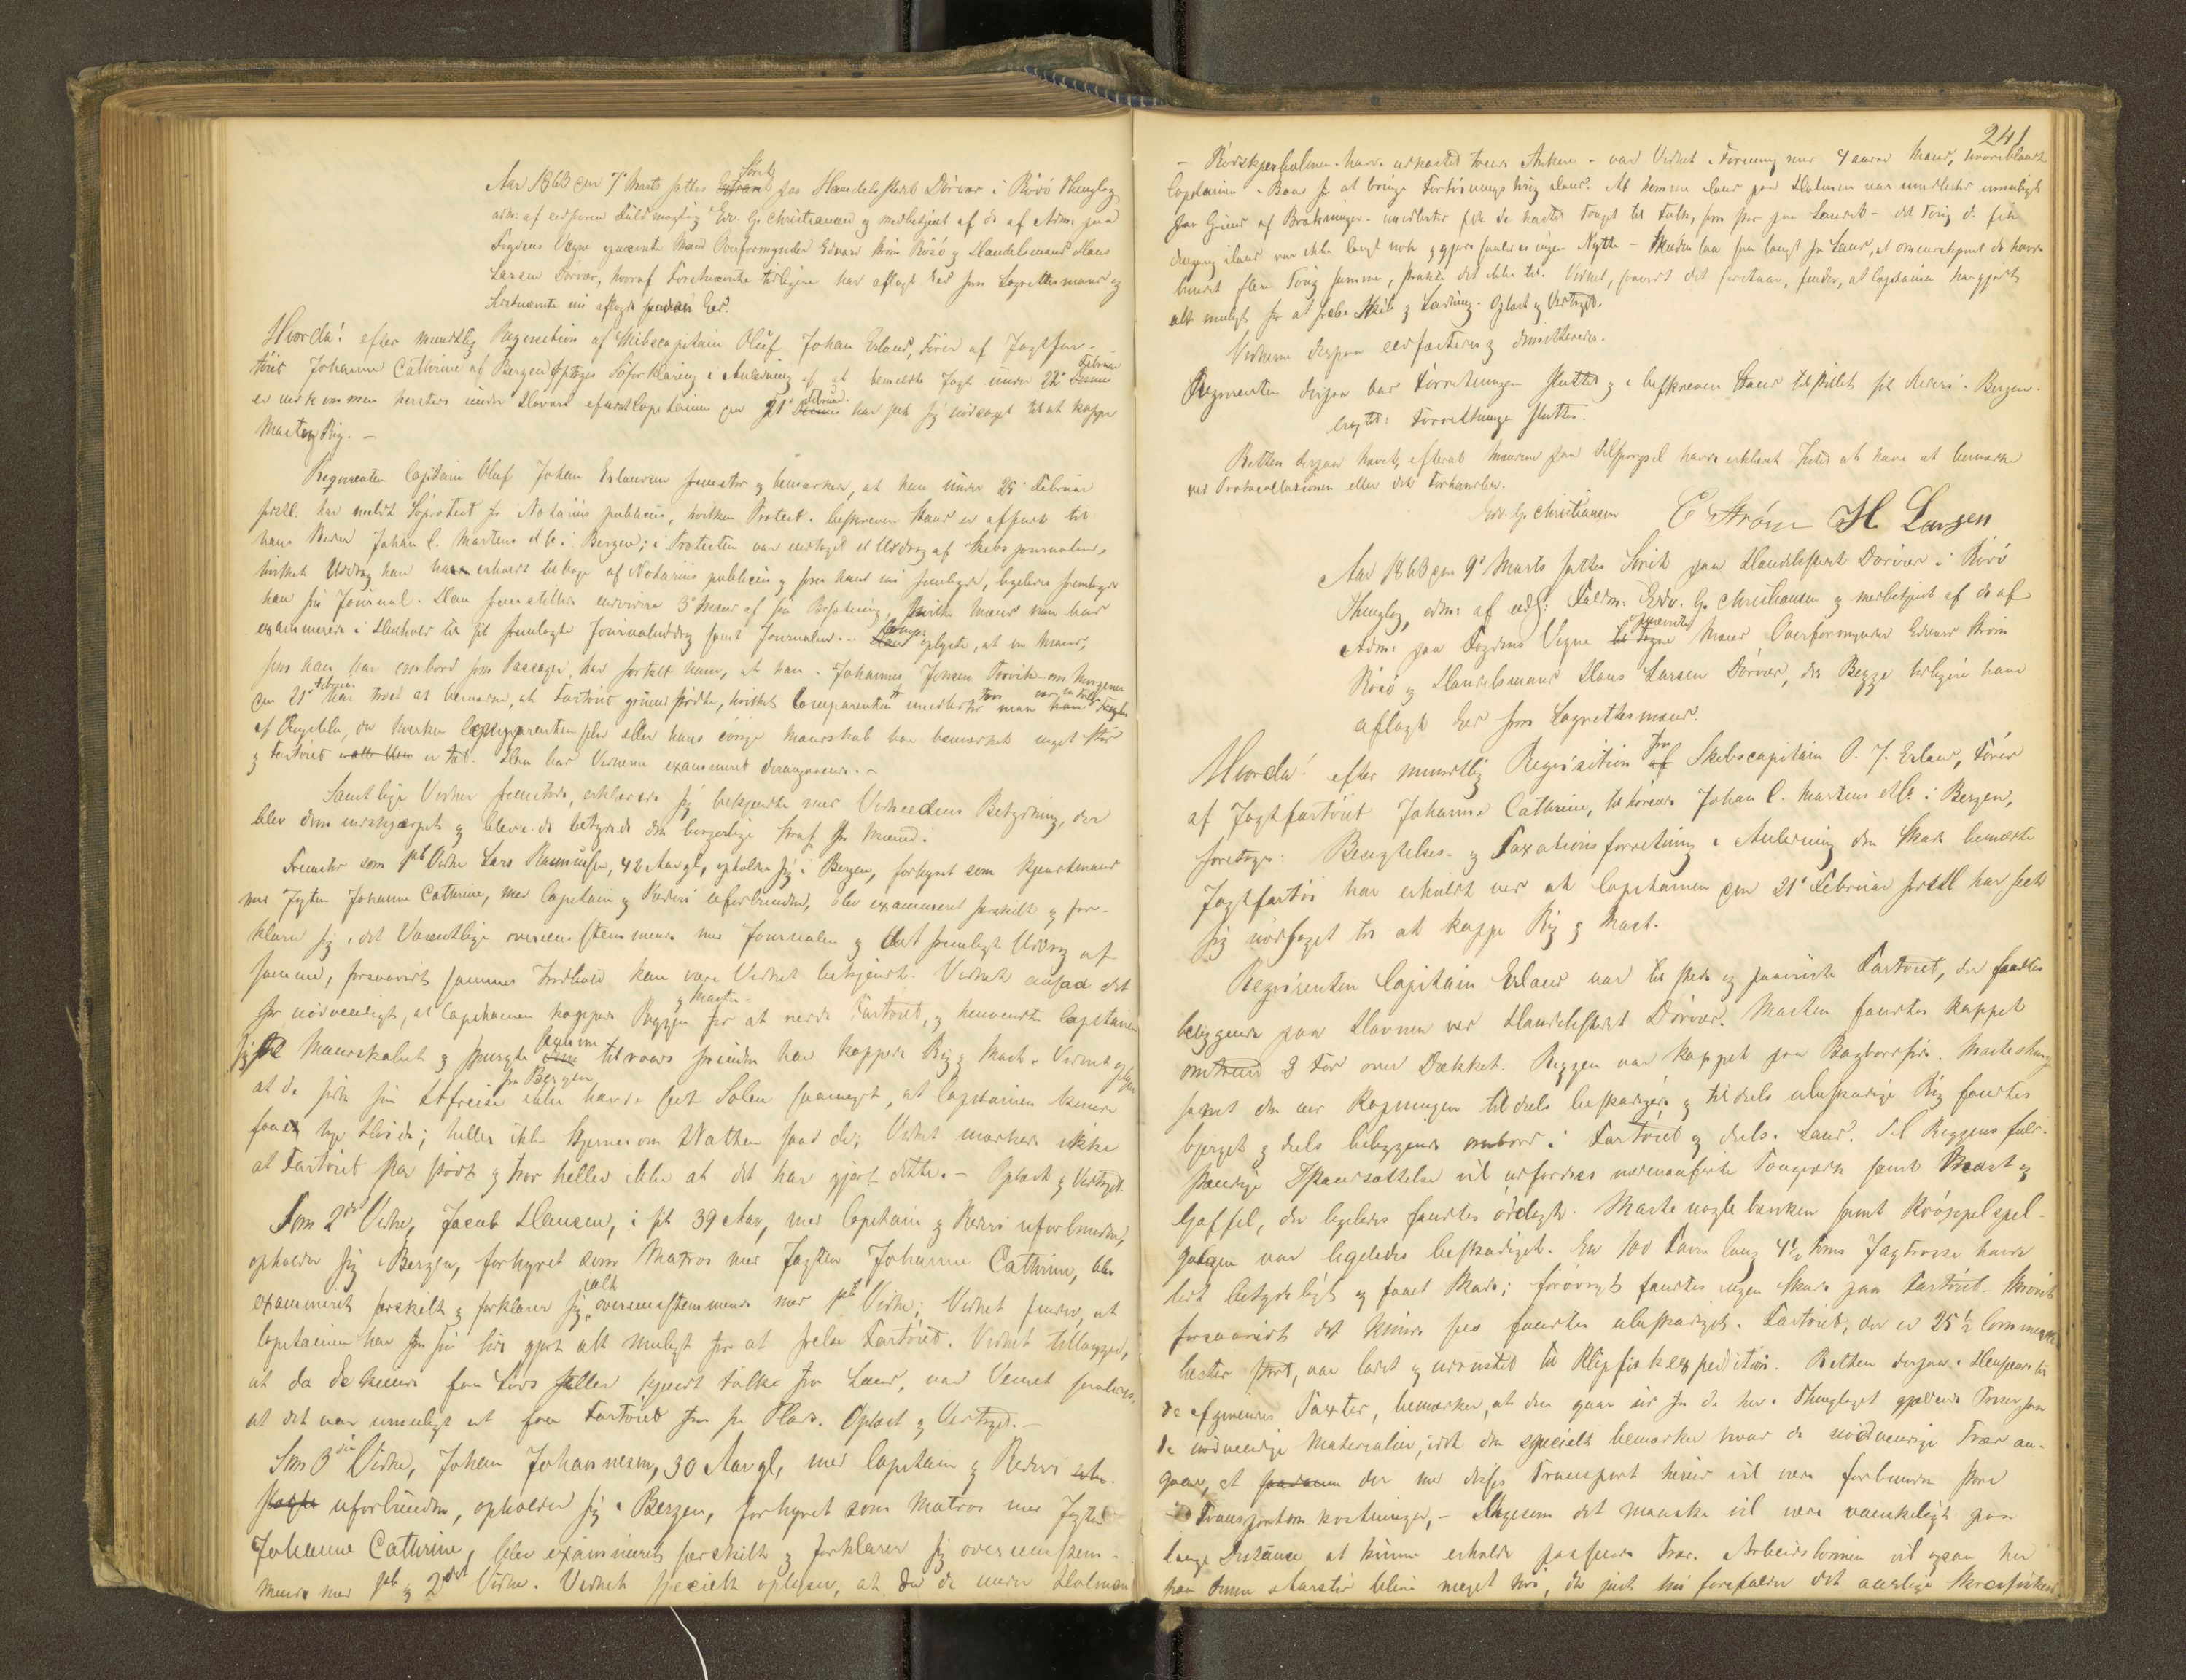 Aar 1863 den 7de Marts sattes Extraret Søret paa Handelsstedet Dörvær i Rösö Thinglag
adm: af edsvoren Fuldmægtig Edv. G. Christiansen og medbetjent af de af Adm: paa
Fogdens Vegne opnævnte Mænd Overformynder Edvard Ström Rösö og Handelsmand Hans
Larsen Dörvær, hvoraf Førstnævnte tidligere har aflagt Ed som Lagrettesmand og
Sidstnævnte nu aflagde saadan Eed.
Hvorda! efter mundtlig Requisition af Skibscapitain Oluf Johan Erland, Fører af Jagtfar-
töiet Johanne Cathrine af Bergen optoges Söforklaring i Anledning af at bemeldte Jagt under 22de Februar
er indkommen hersteds under Havari efterat Capitainen den 21de Februar har seet sig nödsaget til at kappe
Mast og Rig. –
Requirenten Capitain Oluf Johan Erland fremstod og bemærkede, at han under 25de Februar
sidstl: har meldt Söprotest for Notarius publicus, hvilken Protest i beskreven Stand er afsendt til
hans Reder Johan C. Martens & Co. i Bergen; i Protesten var indtaget et Uddrag af Skibsjournalen,
hvilket Uddrag han har erholdt tilbage af Notarius publicus og som han nu fremlagde, ligeledes fremlagde
han sin Journal. Han fremstillede endvidere 3de Mand af sin Besætning, hvilke Mænd man har
examinerede i Henhold til det fremlagte Journaluddrag samt Journalen. – Comp: oplyste, at en Mand,
som han har ombord som Passager, har fortalt ham, at han – Johannes Jonsen Torvik – om Morgenen
den 21de Februar har troet at bemærke, at Fartöiet grundstödte, hvilket Comparenten imidlertid tror var en Følge
af Rügelsen, da hverken Comparenten selv eller hans övrige Mandskab har bemærket noget Stöd
og Fartöiet er tæt. Han bad Vidnerne examineret desangaaende. –
Samtlige Vidner fremstode, erklærede sig bekjendte med Vidneedens Betydning, der
blev dem indskjærpet og bleve de betydede den borgerlige Straf for Meened.
Fremstod som 1ste Vidne Lars Rasmussen, 42 Aar gl, opholder sig i Bergen, forhyret som Kjendtmand
med Jagten Johanne Cathrine, med Capitain og Rederi uforbunden, blev examineret særskilt og for-
klarer sig i det Væsentlige overeensstemmende med Journalen og det fremlagte Uddrag af
samme, forsaavidt sammes Indhold kan være Vidnet bekjendt. Vidnet ansaa det
for nödvendigt, at Capitainen kappede Riggen og Masten for at redde Fartöiet, og henvendte Capitainen
sig til Mandskabet og spurgte dem tilraads forinden han kappede Rig og Mast. Vidnet oplyser
at de siden sin Afreise fra Bergen ikke havde seet Solen saameget, at Capitainen kunde
faaet tage Höide; heller ikke Stjerner om Natten saae de; Vidnet mærkede ikke
at Fartöiet har stödt og tror heller ikke at det har gjort dette. – Oplæst og Vedtaget.
Som 2det Vidne, Jacob Hansen, i sit 39 Aar, med Capitain og Rederi uforbunden,
opholder sig i Bergen, forhyret som Matros med Jagten Johanne Cathrine, blev
examineret særskilt og forklarer sig i alt overeensstemmende med 1ste Vidne; Vidnet finder, at
Capitainen har fra sin Side gjort alt muligt for at frelse Fartöiet. Vidnet tillægger,
at da de kunde faa Lods heller Kjendtfolke fra Land, var Veiret saaledes,
at det var umuligt at faa Fartöiet fra sin Plads. Oplæst og Vedtaget. –
Som 3die Vidne, Johan Johannesen, 30 Aar gl, med Capitain og Rederi
uforbunden, opholder sig i Bergen, forhyret som Matros med Jagten
Johanne Cathrine, blev examineret særskilt og forklarer sig overeensstem-
mende med 1ste og 2det Vidne. Vidnet specielt oplyser, at da de under Holmen
241
– Rödskjærholmen – havde udkastet tvende Ankere – var Vidnet i Forening med 4 andre Mænd, hvoriblandt
Capitainen i Baad for at bringe Fortöiningstoug iland. At komme iland paa Holmen var imidlertid umuligt
paa Grund af Brændinger – imidlertid fik de kastet Touget til Folk, som stod paa Landet – det Toug de fik
iland var ikke langt nok og gjorde saaledes ingen Nytte – Skuden laa saa langt fra Land, at omendskjönt de havde
bundet flere Toug sammen, strakte det ikke til. Vidnet, saavidt det forstaar, finder, at Capitainen har gjort
alt muligt for at frelse Skib og Ladning. Oplæst og Vedtaget.
Vidnerne derpaa eedfæstedes og dimitteredes.
Requirenten derpaa bad Forretningen sluttet og i beskreven Stand tilstillet sit Rederi i Bergen.
Forretningen sluttes.
Retten derpaa hævet, efterat Mændene paa Tilspörgsel havde erklæret Intet at have at bemærke
ved Protocollationen eller det Forhandlede.
Edv. G. Christiansen E Ström H Larsen
Aar 1863 den 9de Marts sattes Søret paa Handelsstedet Dörvær i Rösö
Thinglag, adm: af edsv: Fuldm: Edv. G. Christiansen og medbetjent af de af
Adm: paa Fogdens Vegne opnævnte Mænd Overformynder Edvard Ström
Rösö og Handelsmand Hans Larsen Dörvær, der Begge tidligere have
aflagt Eed som Lagrettesmænd.
Hvorda! efter mundtlig Requisition fra Skibscapitain O. J. Erland, Fører
af Jagtfartöiet Johanne Cathrine, tilhörende Johan C. Martens & Co. i Bergen,
foretoges: Besigtelses- og Taxationsforretning i Anledning den Skade bemeldte
Jagtfartöi har erholdt ved at Capitainen den 21de Februar sidstl har seet
sig nödsaget til at kappe Rig og Mast.
Requirenten Capitain Erland var tilstede og paaviste Fartöiet, der fandtes
beliggende paa Havnen ved Handelsstedet Dörvær. Masten fandtes kappet
omtrent 3 Fod over Dækket. Riggen var kappet paa Bagbordside.
samt den ved Kapningen tildeels beskadigede og tildeels ubeskadigede Rig fandtes
bjerget og deels beliggende ombord i Fartöiet og deels i Land. Til Riggens fuld-
stændige Istandsættelse vil udfordres Tougværk samt Mast og
Gaffel, der ligeledes fandtes ödelagt. Mastenaglebænken samt
var ligeledes beskadiget. En 100 Favn lang 4½ Toms Jagtrosse havde
lidt betydeligt og faaet Skade; forövrigt fandtes ingen Skade paa Fartöiet – Skroget
forsaavidt det kunde sees fandtes ubeskadiget. Fartöiet, der er 25½ Commerce-
læster stort, var ladet og udrustet til Klipfiskexpedition. Retten derpaa i Henseende til
de afgivende Taxter, bemærker, at den gaar ud fra de her i Thinglaget gjældende Priser paa
de nödvendige Materialier, idet den specielt bemærker hvad de nödvendige Træer an-
gaar, at der med disses Transport herud vil være forbunden store
Transportomkostninger, – ligesom det maaske vil være vanskeligt paa
lange Distance at kunne erholde passende Træ. Arbeidslönnen vil ogsaa her
paa denne Aarstid blive meget höi, da just nu forefalder det aarlige Skreifiskeri